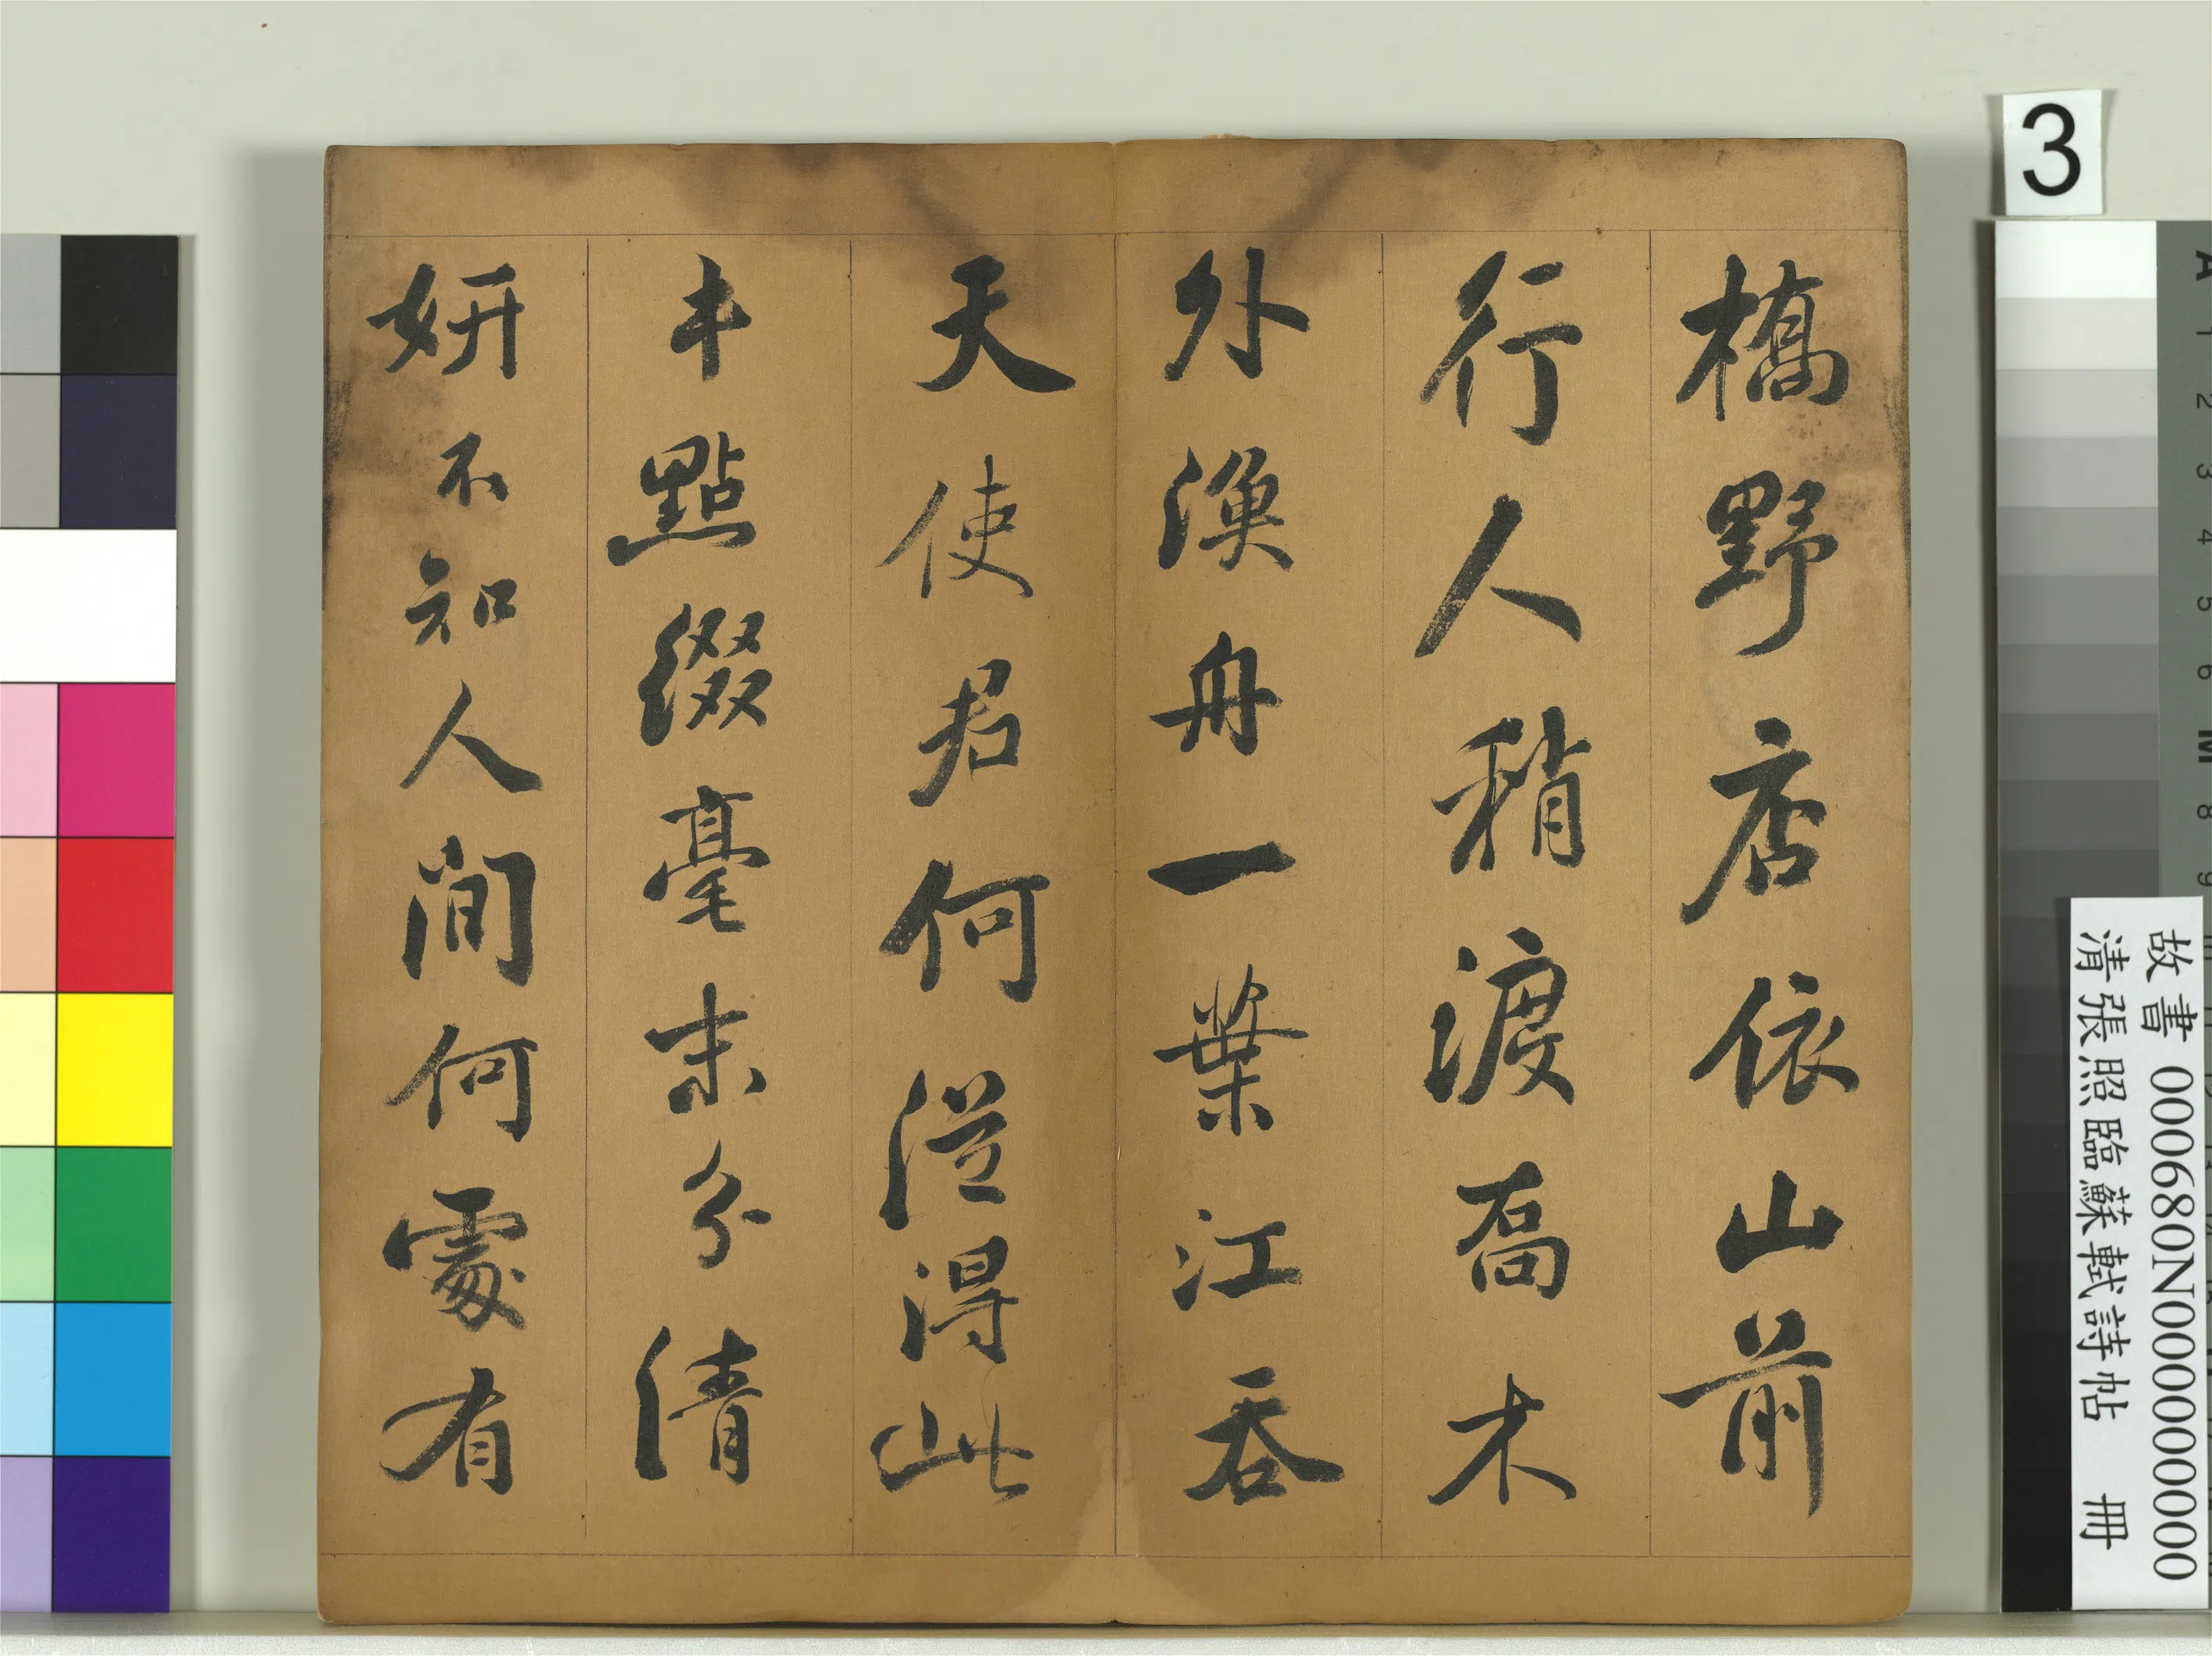 橋野店依山前
行人稍渡喬木
外漁舟一葉江吞
天使君何從得此
本點綴毫末分清
妍不知人間何處有
3
A 1 2 3 4 5 6 M 8 9
故書 000680N000000000
清張照臨蘇軾詩帖 冊